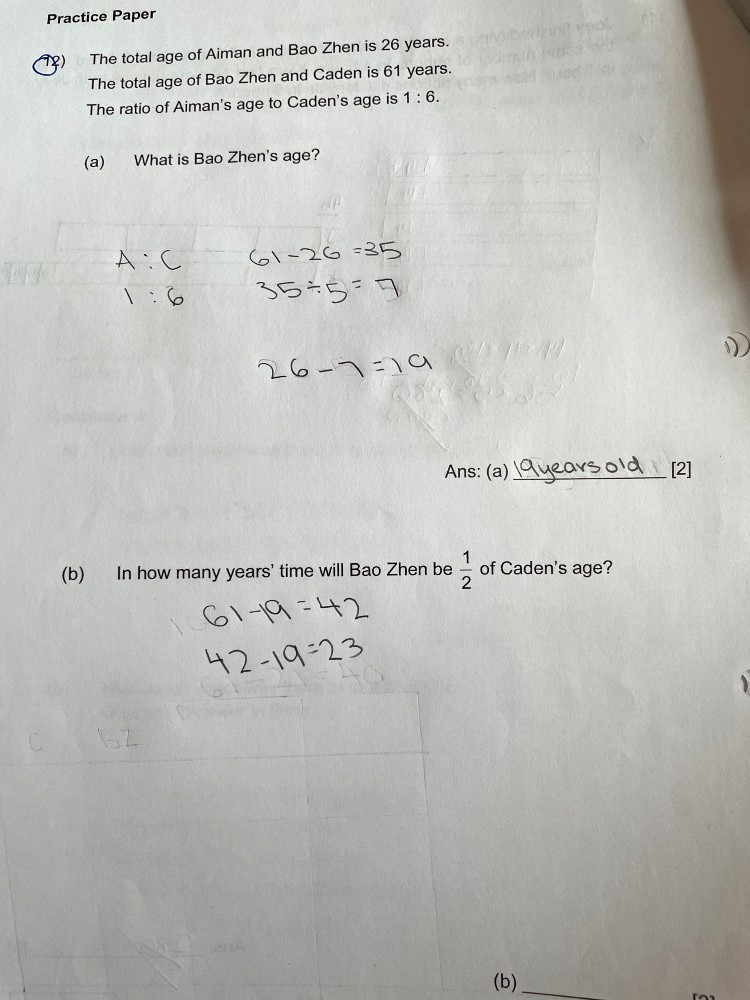 Practice Paper
12) The total age of Aiman and Bao Zhen is 26 years.
The total age of Bao Zhen and Caden is 61 years.
The ratio of Aiman's age to Caden's age is 1 : 6.
(a) What is Bao Zhen's age?
A : C 61-26=35
1 : 6 35÷5=7
26-7=19
Ans: (a) 19 years old [2]
(b) In how many years' time will Bao Zhen be 1/2 of Caden's age?
61-19=42
42-19=23
C BZ
(b)